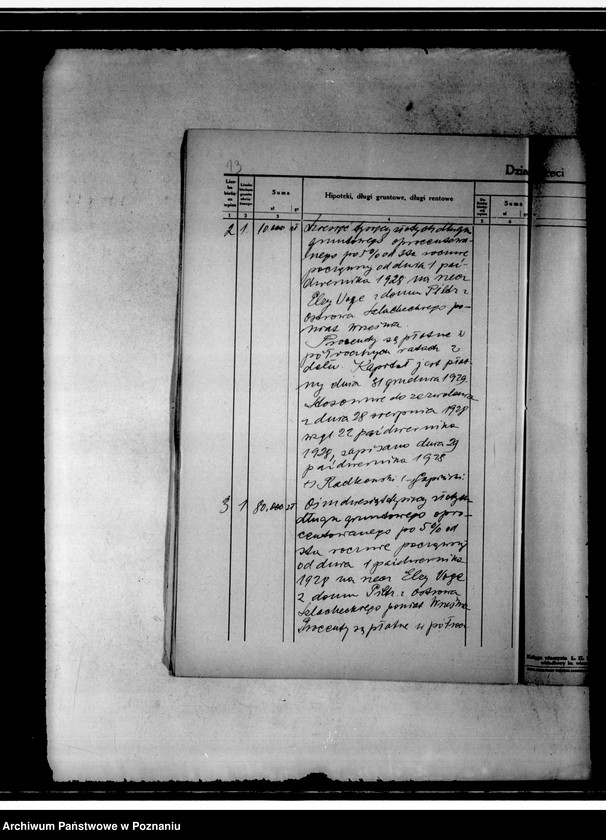 13
Dział
Liczba bieżąca wpisu
Suma
zł gr
Hipoteki, długi gruntowe, długi rentowe
Suma
zł
1 2 3 4 5 6
2 1 10.000 zł tysięcy złotych długu
gruntowego oprocentowa-
nego po 5% od sta rocznie
począwszy od dnia 1 paź-
dziernika 1928 na rzecz
Elzy Voge z domu Piltz z
Ostrowa Szlacheckiego po-
wiat Września.
Procenty są płatne w
półrocznych ratach z
dołu. Kapitał jest płat-
ny dnia 31 grudnia 1929.
Stosownie do zezwolenia
z dnia 28 sierpnia 1928
wzgl 22 października
1928, zapisano dnia 29
października 1928
Radkowski
3 1 80.000 zł Ośmdziesiąt tysięcy złotych
długu gruntowego opro-
centowanego po 5% od
sta rocznie począwszy
od dnia 1 października
1928 na rzecz Elzy Voge
z domu Piltz z Ostrowa
Szlacheckiego powiat Września
Procenty są płatne w półrocz
Archiwum Państwowe w Poznaniu